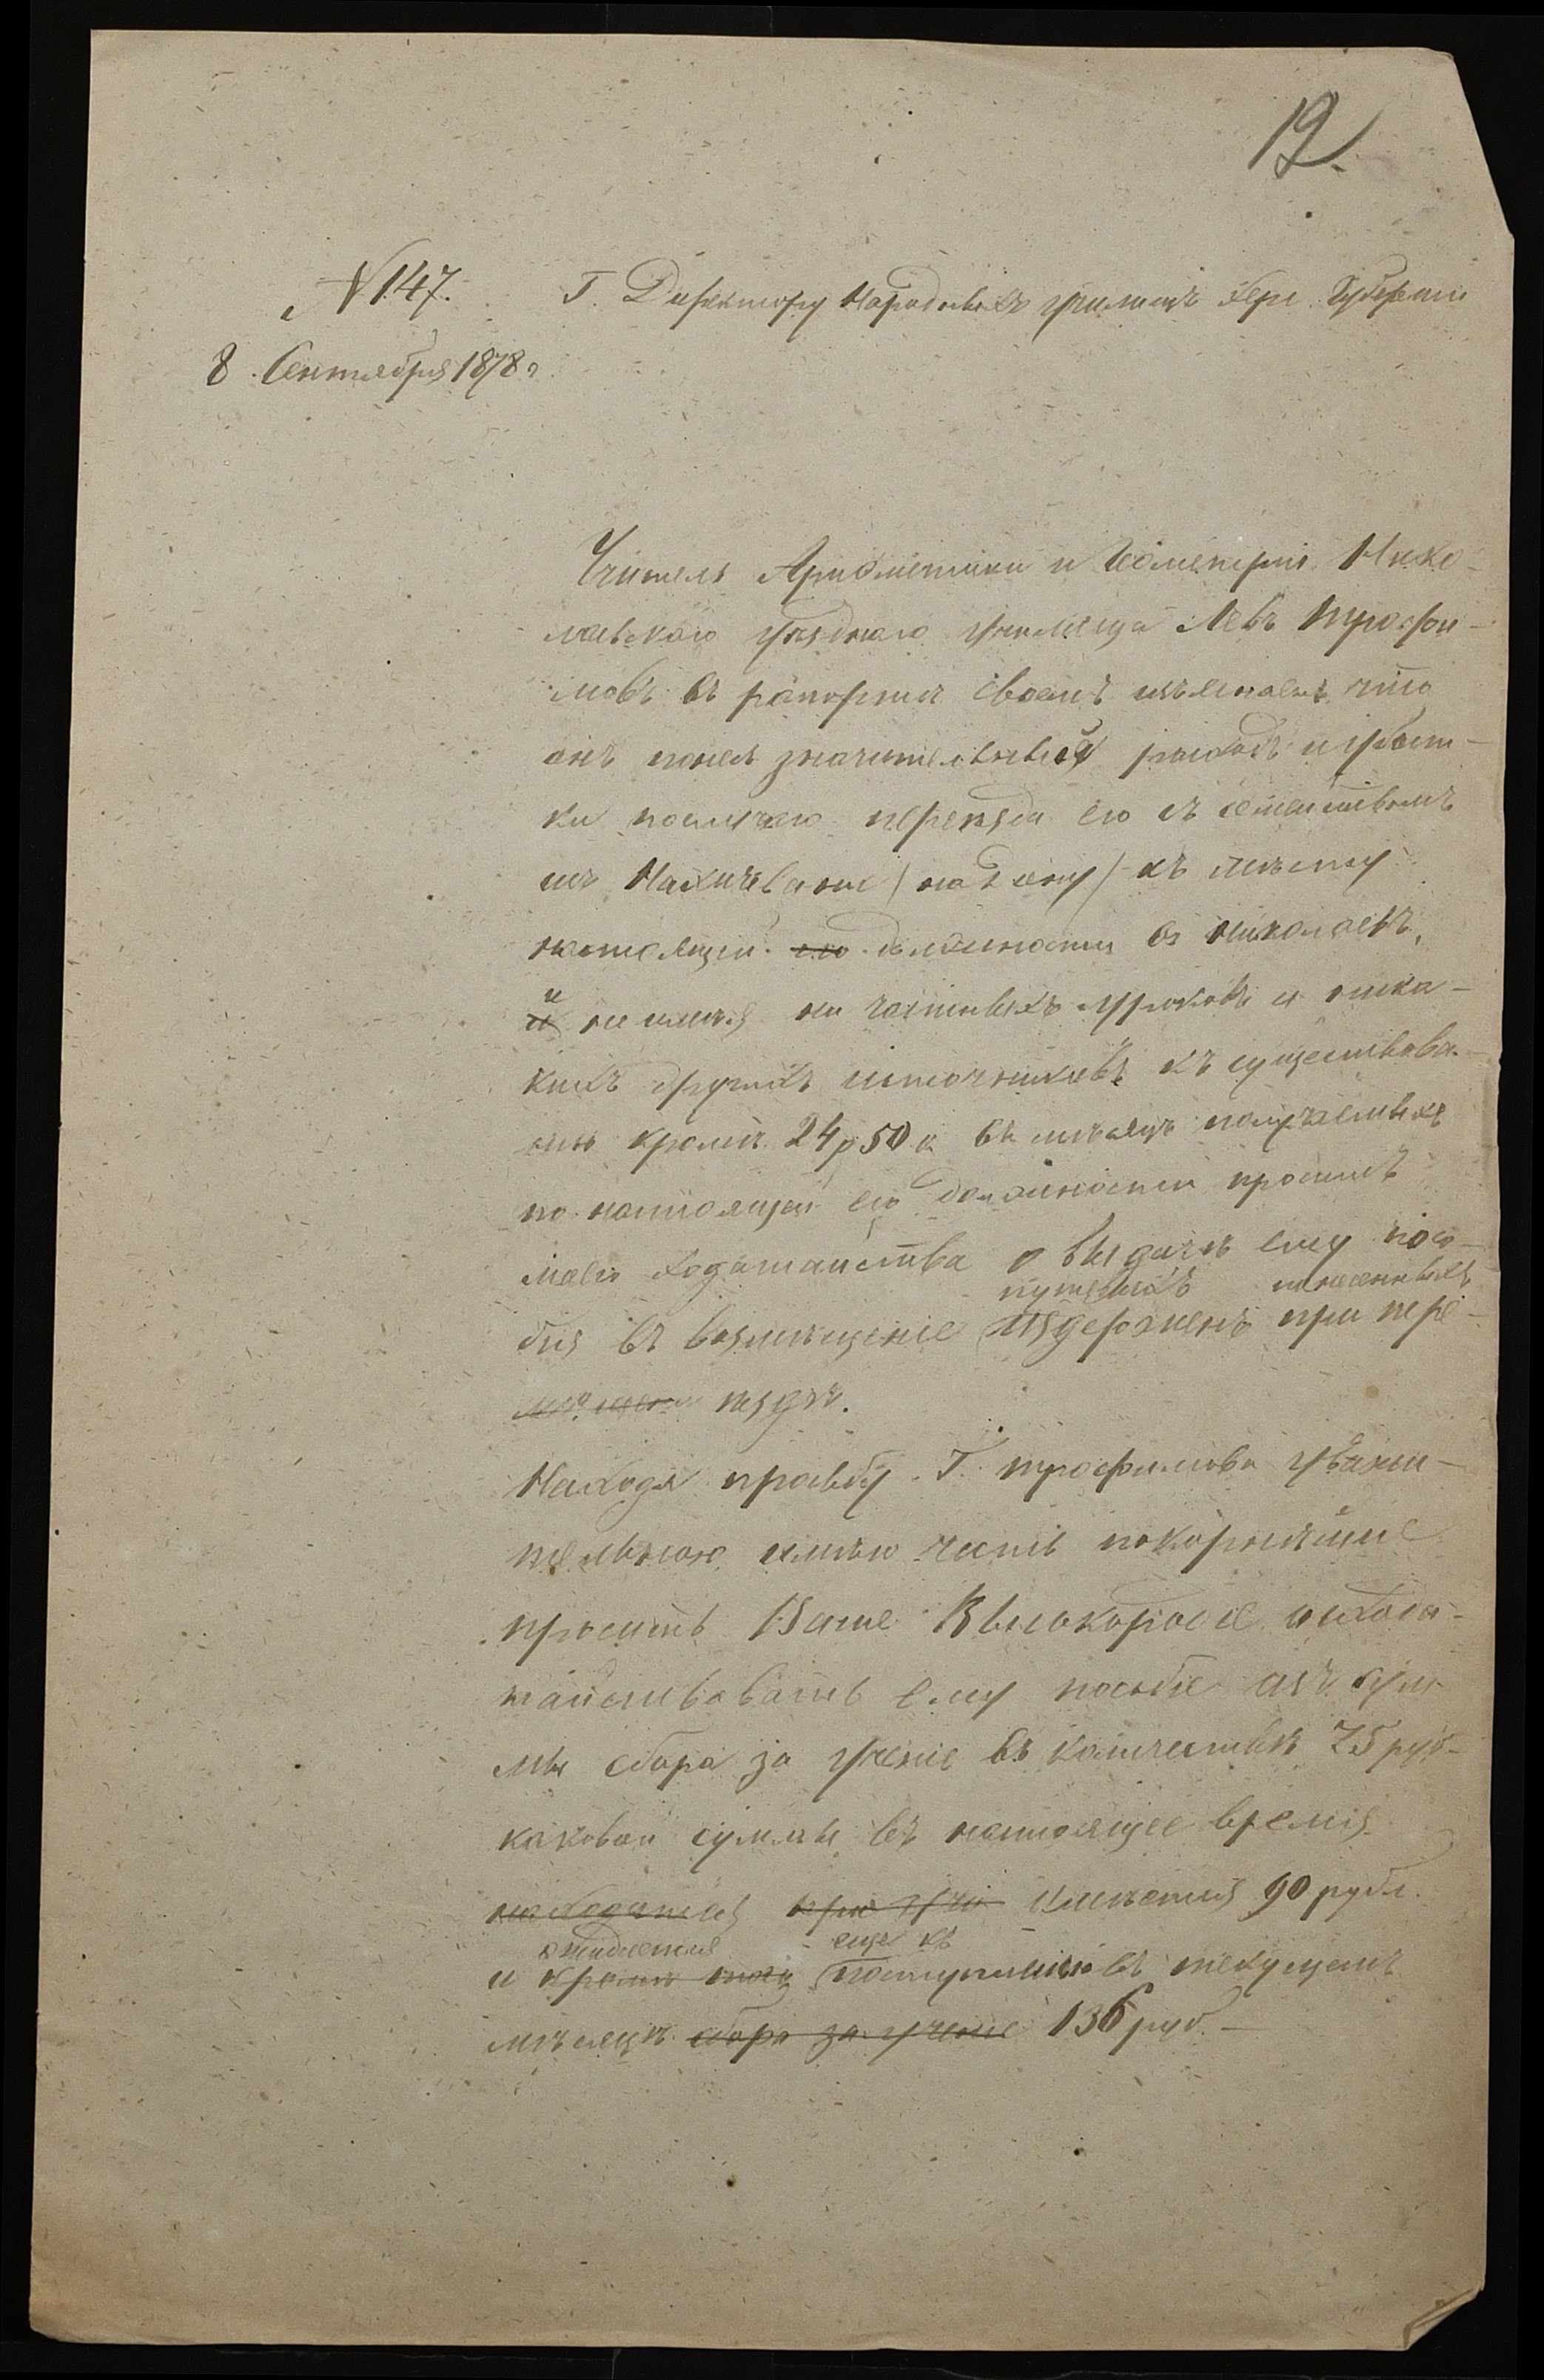 19
№ 147.
Г. Директору Народныхъ училищъ Хер. Губерніи
8 Сентября 1878 г.
Учитель Ариѳметики и Геометріи Нико-
лаевскаго уѣзднаго училища Левъ Трофи-
мовъ въ рапортѣ своемъ изъясняетъ что
онъ понесъ значительный расходъ и убыт-
ки по случаю переѣзда его съ семействомъ
изъ Нахичевани (на Дону) къ мѣсту
настоящей его должности въ Николаевѣ,
и не имѣя ни частныхъ уроковъ и ника-
кихъ другихъ источниковъ къ существова-
нію кромѣ 24 р 50 к въ мѣсяцъ получаемыхъ
по настоящей его должности проситъ
моего ходатайства о выдачѣ ему посо-
путевыхъ понесенныхъ
бія въ возмѣщеніе издержекъ при пере-
ѣздѣ.
Находя просьбу Г. Трофимова уважи-
тельною имѣю честь покорнѣйше
просить Ваше Высокородіе исхода-
тайствовать ему пособіе изъ сум-
мы сбора за ученіе въ количествѣ 75 руб-
каковой суммы въ настоящее время
находится имѣется 90 рубл.
ожидается еще къ
и кромѣ того поступленію въ текущемъ
мѣсяцѣ сбора за ученіе 136 руб.